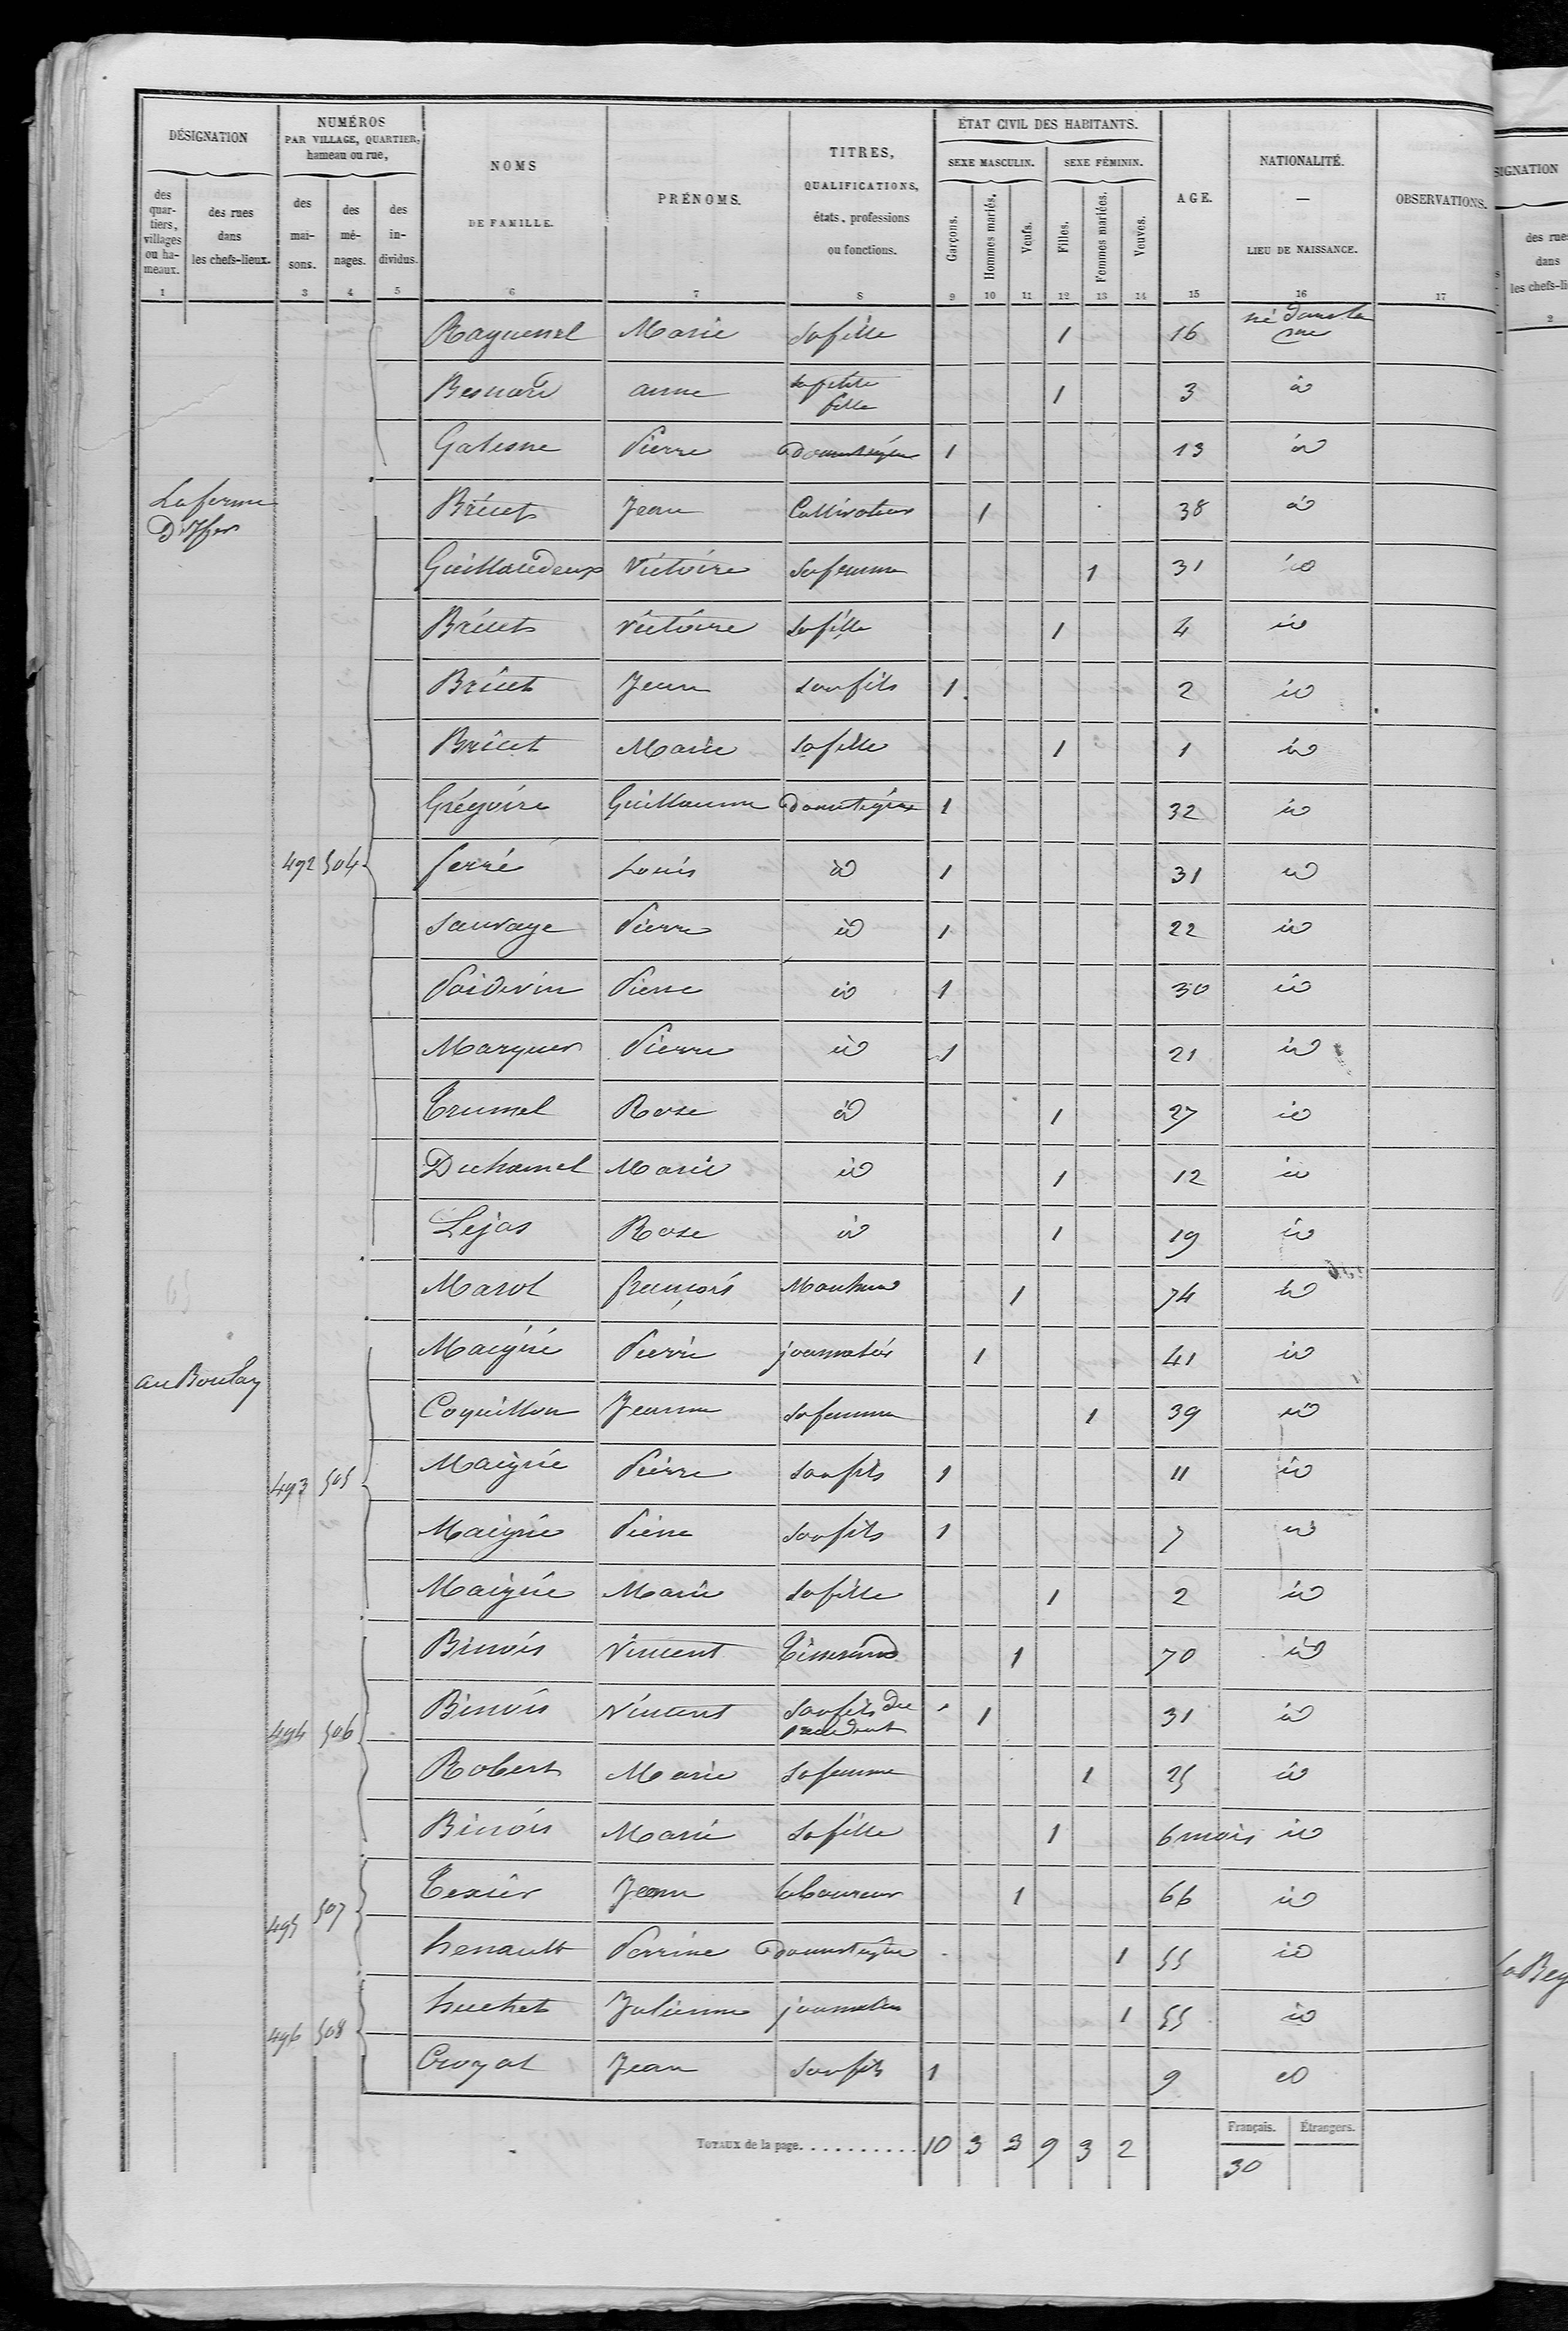 DÉSIGNATION
NUMÉROS PAR VILLAGE, QUARTIER, hameau ou rue,
NOMS DE FAMILLE.
PRÉNOMS.
TITRES, QUALIFICATIONS, états, professions ou fonctions.
ÉTAT CIVIL DES HABITANTS.
SEXE MASCULIN. SEXE FÉMININ.
AGE.
NATIONALITÉ. — LIEU DE NAISSANCE.
OBSERVATIONS.
des quartiers, villages ou hameaux. des rues dans les chefs-lieux. des maisons. des ménages. des individus. Garçons. Hommes mariés. Veufs. Filles. Femmes mariées. Veuves.
1 3 4 5 6 7 8 9 10 11 12 13 14 15 16 17
Raguenel Marie sa fille 1 16 né dans la
Besnard anne sa petite fille 1 3 id
Gatesne Pierre domestique 1 13 id
La ferme Bricet Jean Cultivateur 1 38 id
Guillaudeux Victoire sa femme 1 31 id
Bricet Victoire sa fille 1 4 id
Bricet Jean son fils 1 2 id
Bricet Marie sa fille 1 1 id
Grégoire Guillaume domestique 1 32 id
492 504 ferré Louis id 1 31 id
Sauvage Pierre id 1 22 id
Poidevin Pierre id 1 30 id
Marquer Pierre id 1 21 id
Trumel Rose id 1 27 id
Duhamel Marie id 1 12 id
Lejas Rose id 1 19 id
Marot françois 1 74 id
au Boulay Maigné Pierre journalier 1 41 id
Coquillon Jeanne sa femme 1 39 id
493 505 Maigné Pierre son fils 1 11 id
Maigné Pierre son fils 1 7 id
Maigné Marie sa fille 1 2 id
Binois Vincent Tisserand 1 70 id
494 506 Binois Vincent son fils du précédent 1 31 id
Robert Marie sa femme 1 25 id
Binois Marie sa fille 1 6 mois id
495 507 Texier Jean laboureur 1 66 id
henault Perrine domestique 1 55 id
496 508 huchet Julienne journalière 1 55 id
Croyal Jean son fils 1 9 id
TOTAUX de la page. 10 3 3 9 3 2
Français. Étrangers.
30
SIGNATION
des rues
dans
les chefs-li
2